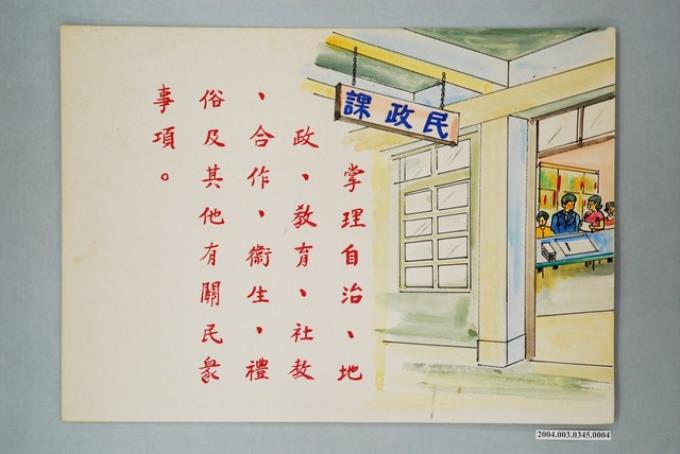 民政課
掌理自治、地
政、教育、社教
、合作、衞生、禮
俗及其他有關民衆
事項。
2004.003.0345.0004